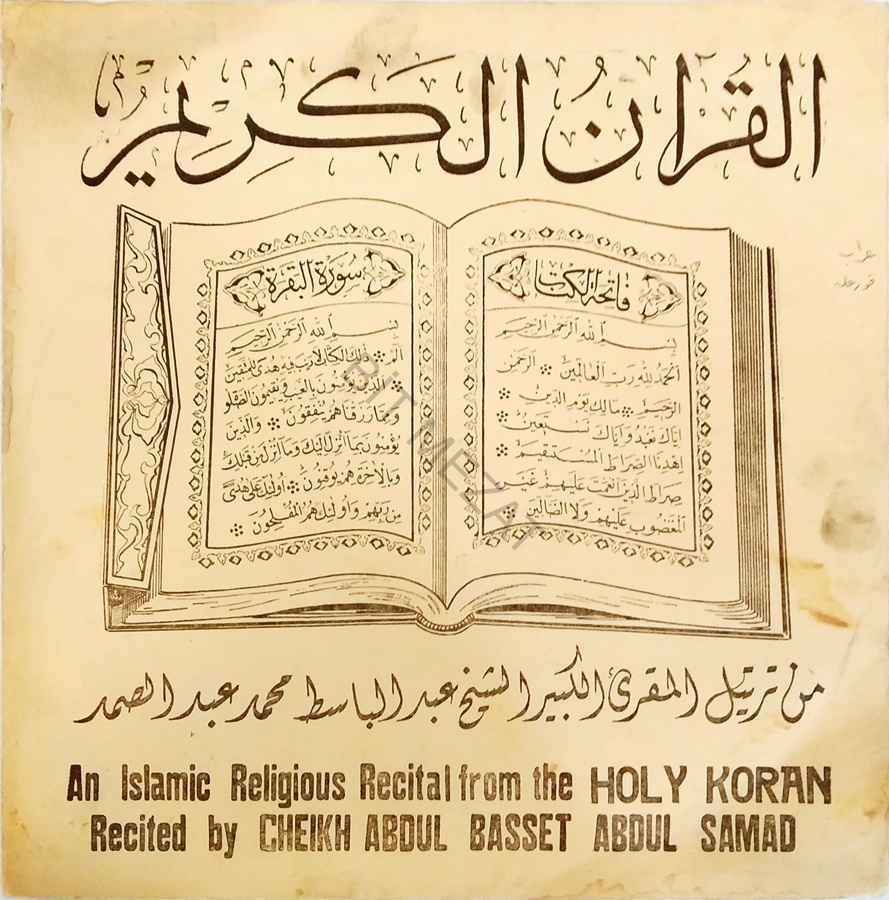 القرآن الكريم
فاتحة الكتاب
بسم الله الرحمن الرحيم
الحمد لله رب العالمين الرحمن
الرحيم مالك يوم الدين
اياك نعبد واياك نستعين
اهدنا الصراط المستقيم
صراط الذين انعمت عليهم غير
المغضوب عليهم ولا الضالين
سورة البقرة
بسم الله الرحمن الرحيم
الم ذلك الكتاب لا ريب فيه هدى للمتقين
الذين يؤمنون بالغيب ويقيمون الصلو
ومما رزقناهم ينفقون والذين
يؤمنون بما أنزل اليك وما أنزل من قبلك
وبالآخرة هم يوقنون أولئك على هدى
من ربهم وأولئك هم المفلحون
BİT MEZAT
من ترتيل المقرئ الكبير الشيخ عبد الباسط محمد عبد الصمد
An Islamic Religious Recital from the HOLY KORAN
Recited by CHEIKH ABDUL BASSET ABDUL SAMAD